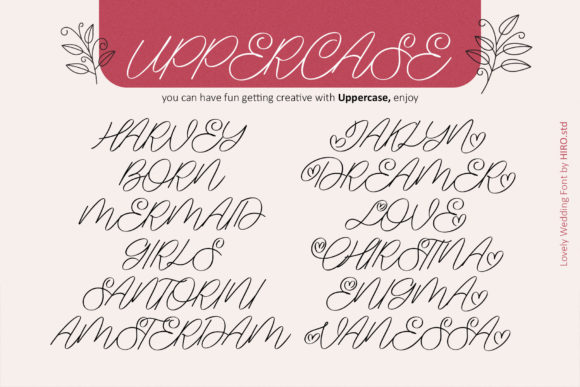 UPPERCASE
you can have fun getting creative with Uppercase, enjoy
HARVEY
BORN
MERMAID
GIRLS
SANTORINI
AMSTERDAM
JAKLYN
DREAMER
LOVE
ENIGMA
VANESSA
Lovely Wedding Font by HIRO.std